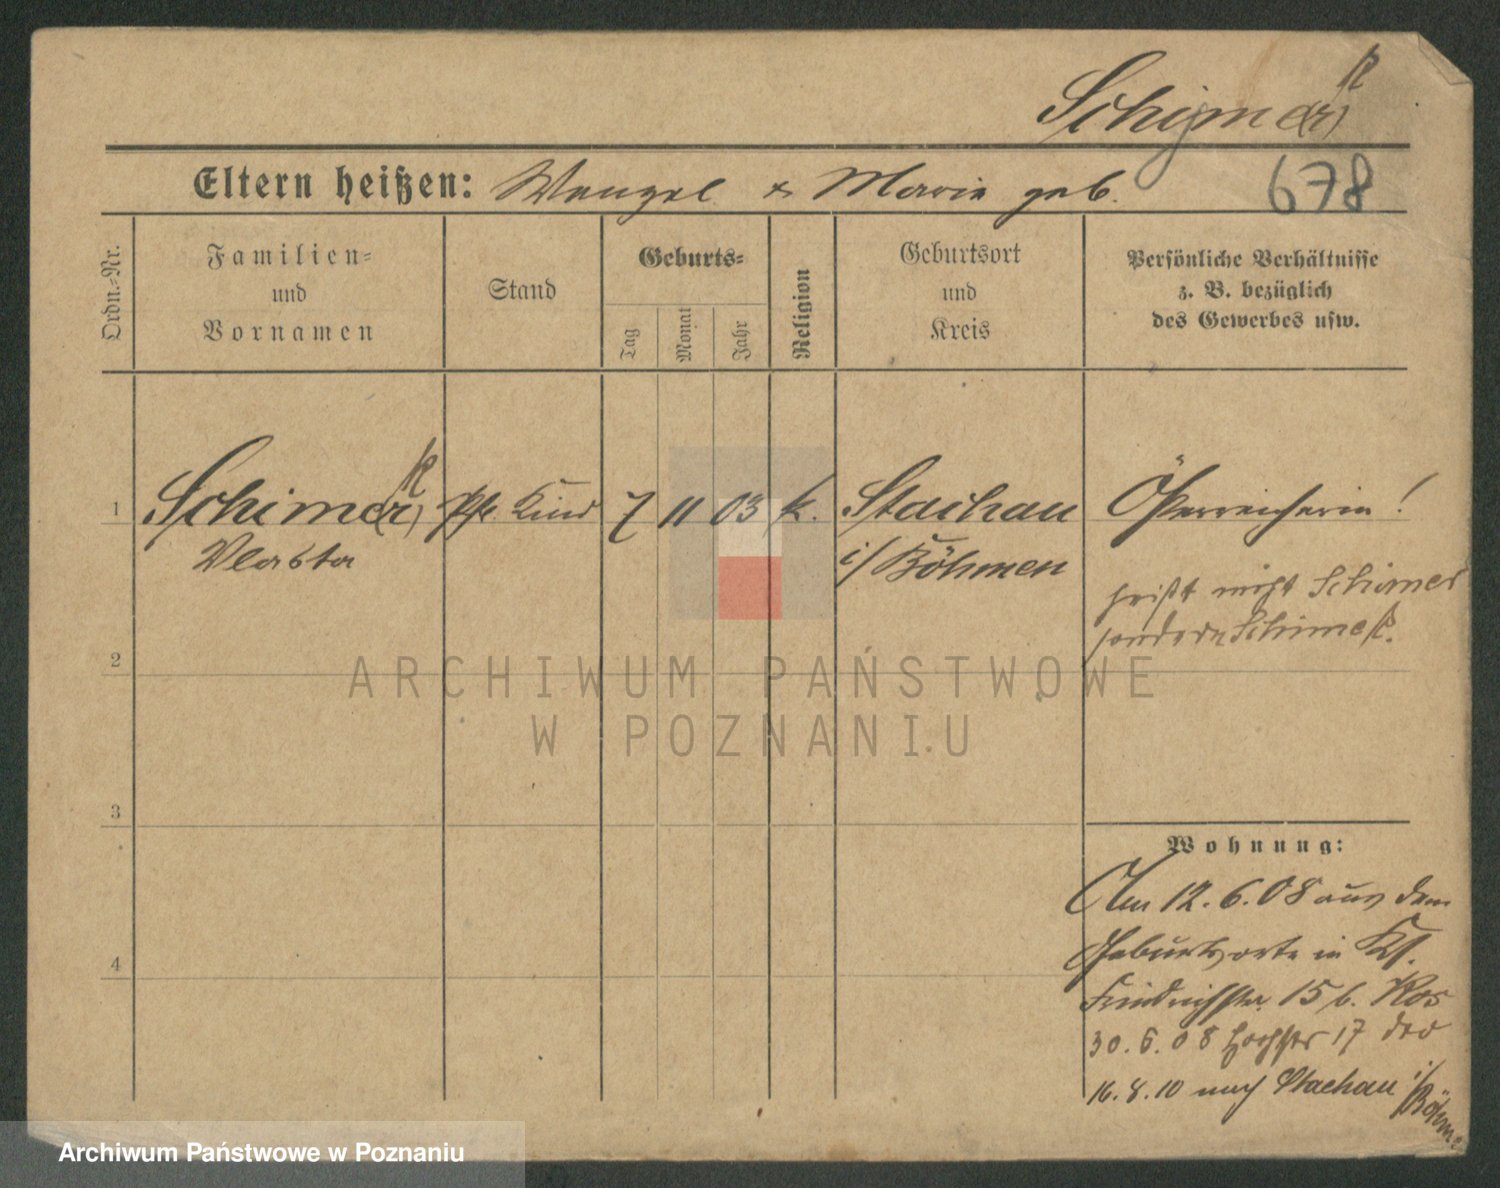 Schimer k
Eltern heißen: Wenzel & Marie geb.
678
Ordn.=Nr.
Familien=
und
Vornamen
Stand
Geburts=
Tag
Monat
Jahr
Religion
Geburtsort
und
Kreis
Persönliche Verhältnisse
z. B. bezüglich
des Gewerbes usw.
1
Schime(r) k
Vlasta
Kind
7 11 03 k.
Stachau
i/ Böhmen
Österreicherin!
heißt nicht Schimer
sondern Schimek.
2
3
4
Wohnung:
Am 12.6.08 aus dem
Geburtsorte in
Friedrichstr. 15 b. Kos
30.6.08 17 dto
16.8.10 nach Stachau i/ Böhmen
ARCHIWUM PAŃSTWOWE
W POZNANIU
Archiwum Państwowe w Poznaniu